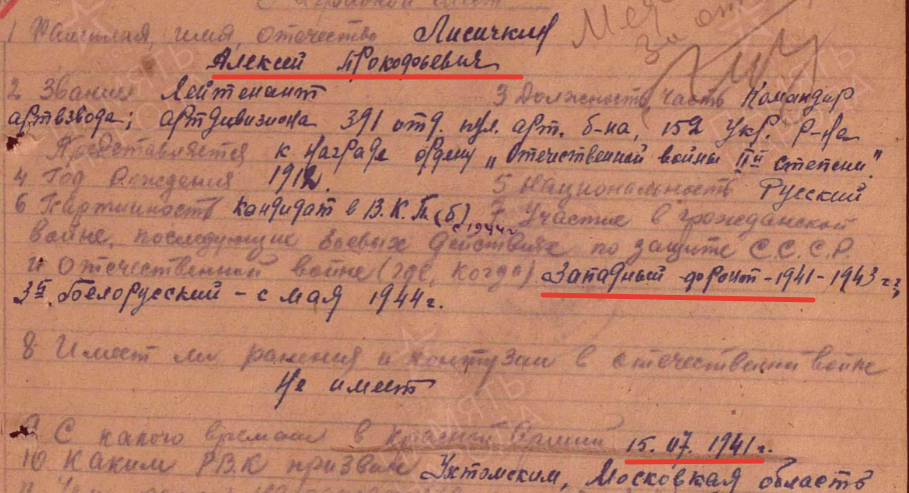 Наградной лист
1 Фамилия, имя, отчество Лисичкин
Алексей Прокофьевич
2 Звание Лейтенант 3 Должность, часть Командир
артвзвода; артдивизиона 391 отд. пул. арт. б-на, 152 Укр. р-на
Представляется к награде ордену „Отечественной войны IIй степени".
4 Год рождения 1912. 5 Национальность Русский
6 Партийность кандидат в В.К.П.(б) с 1944г. 7 Участие в гражданской
войне, последующих боевых действиях по защите С.С.С.Р.
и отечественной войне (где, когда) Западный фронт-1941-1943 г.,
3й Белорусский - с мая 1944г.
8 Имеет ли ранения и контузии в отечественной войне
Не имеет
9 С какого времени в красной Армии 15.07.1941г.
10 Каким РВК призван Ухтомским, Московская область